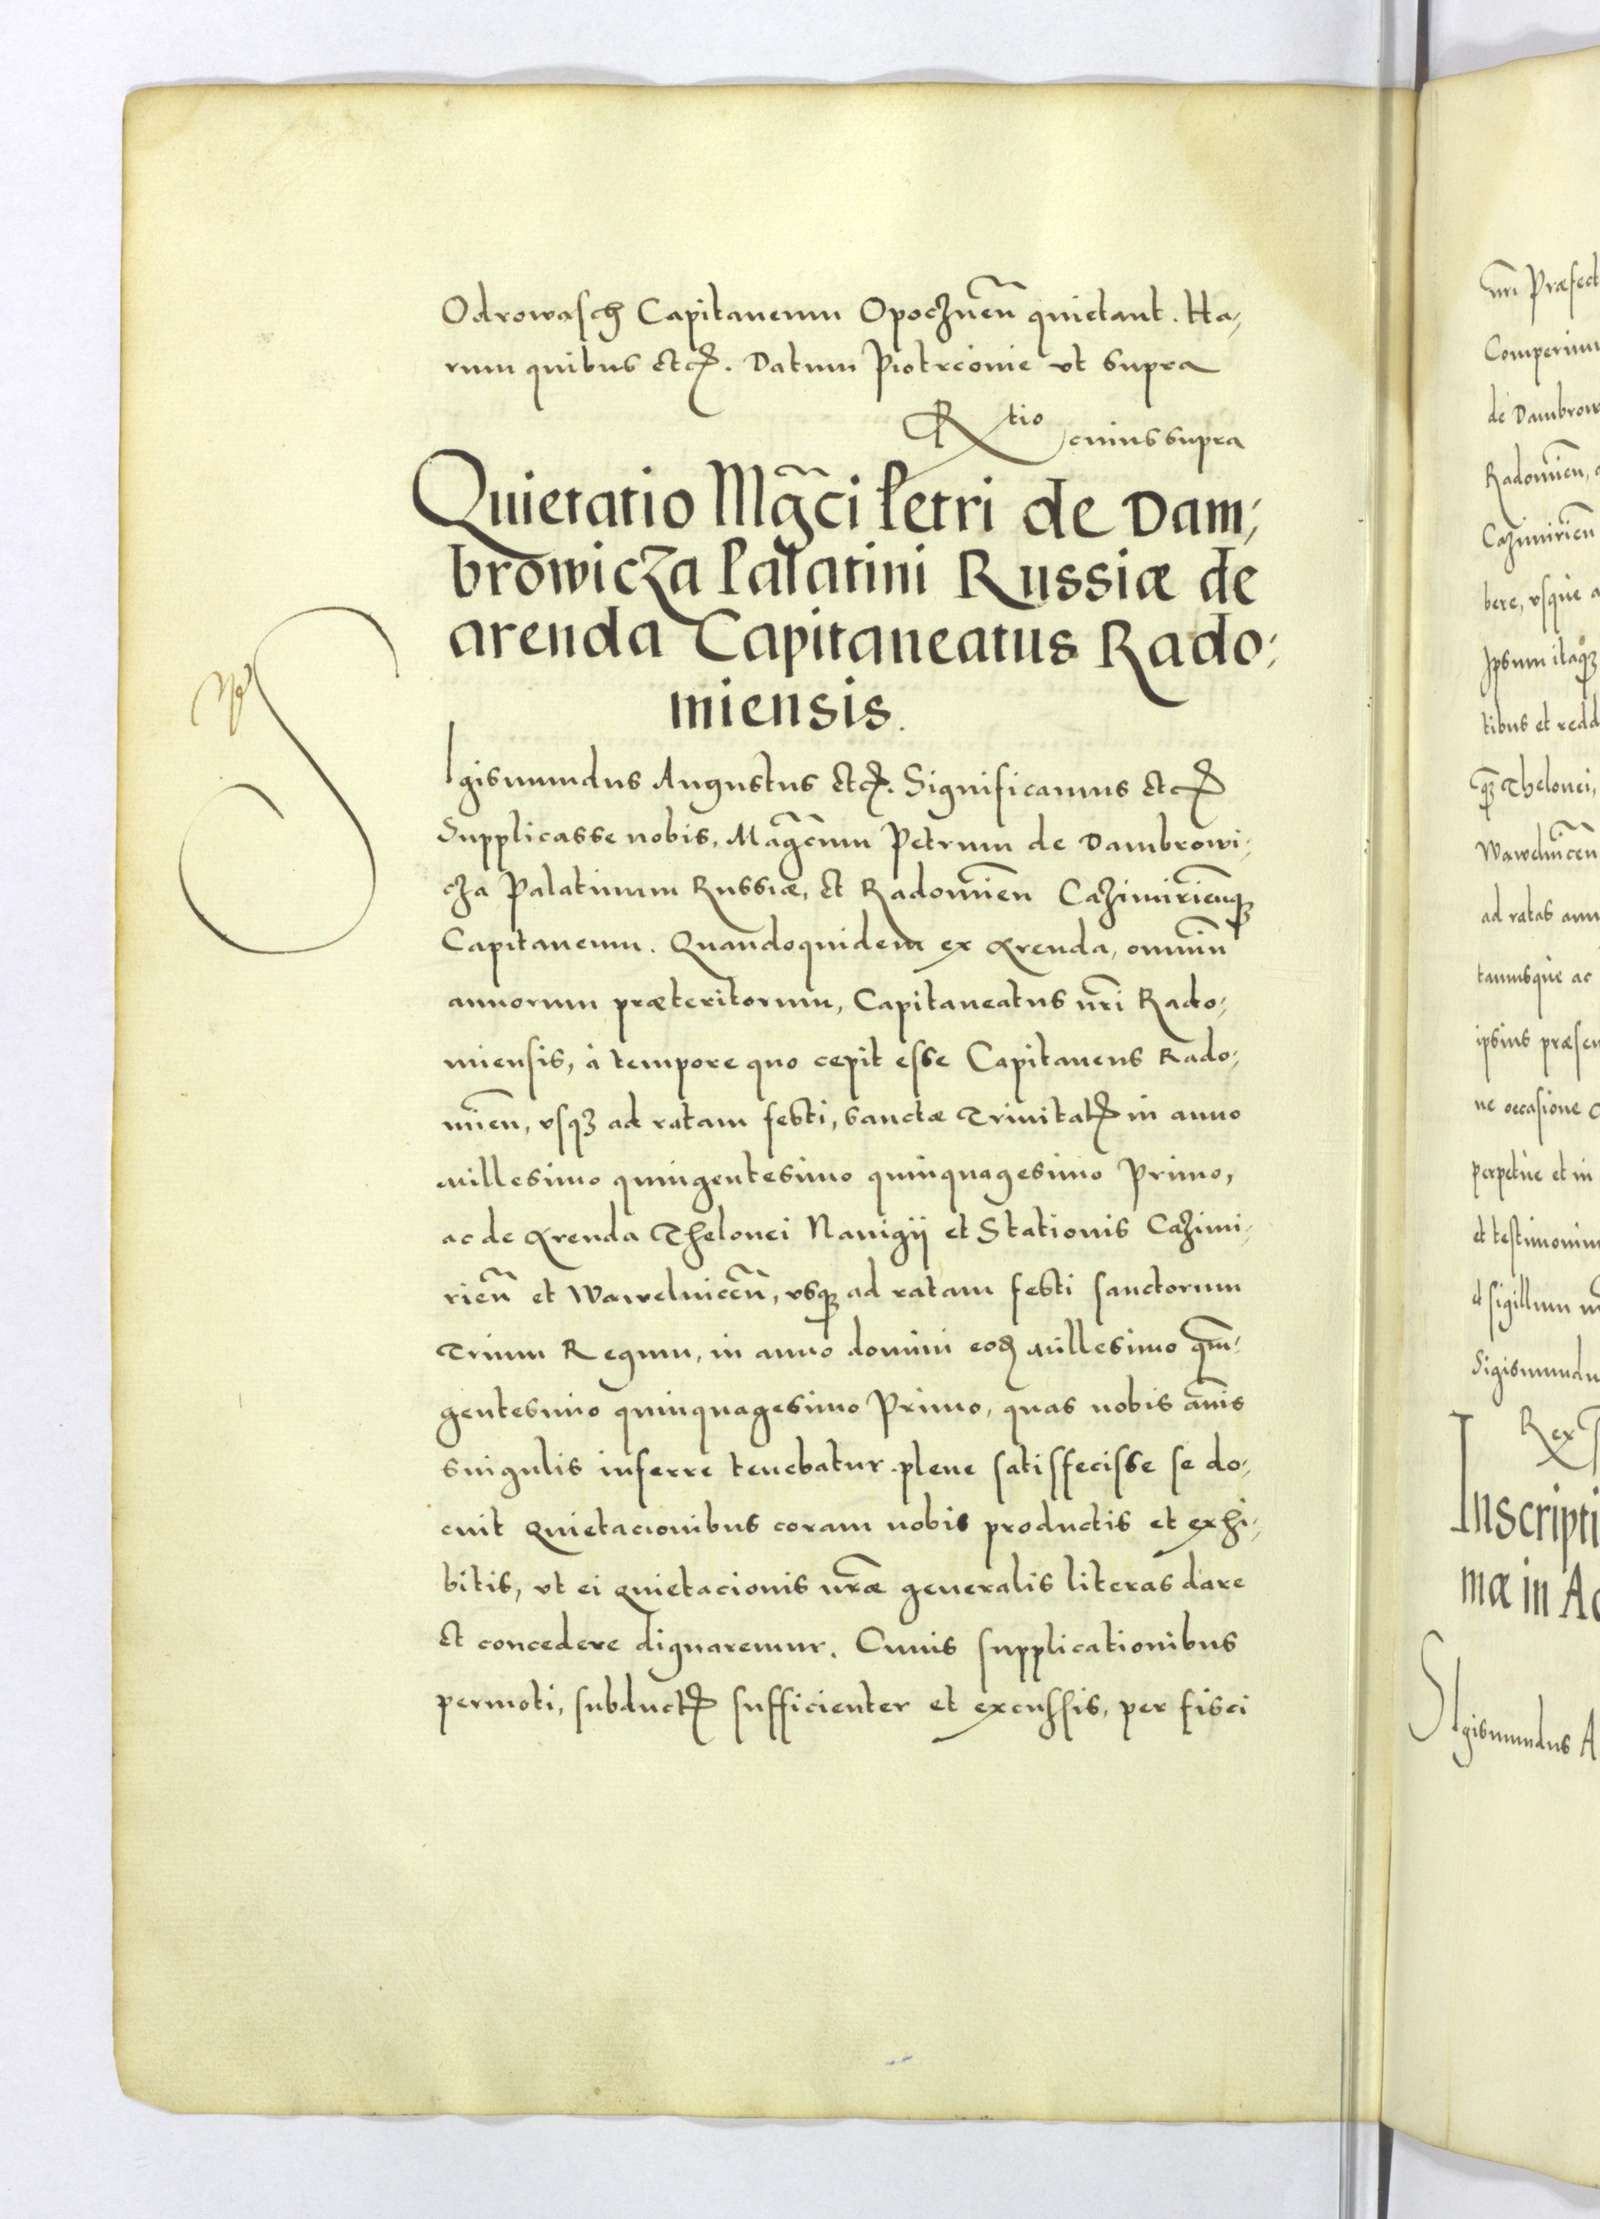 Odrowasch Capitaneum Opocznen̄ quietant. Ha,
rum quibus etcȝ. Datum Piotrcoviae ut supra
Rtio cuius supra
Quietatio Mgc̄i Petri de Dam,
browicza Palatini Russiæ de
arenda Capitaneatus Rado,
miensis.
SIgismundus Augustus etcȝ. Significamus etcȝ
Supplicasse nobis, Magc̄um Petrum de Dambrowi,
cza Palatinum Russiæ, et Radomien̄ Cazimirien̄qȝ
Capitaneum. Quandoquidem ex Arenda, omniū
annorum præteritorum, Capitaneatus nr̄i Rado,
miensis, à tempore quo cepit esse Capitaneus Rado,
mien̄, usqȝ ad ratam festi, sanctæ Trinitatȝ in anno
Millesimo quingentesimo quinquagesimo Primo,
ac de Arenda Thelonei Navigij et Stationis Cazimi,
rien̄ et Wawelnicen̄, usqȝ ad ratam festi sanctorum
Trium Regum, in anno domini eodȝ Millesimo quin̄,
gentesimo quinquagesimo Primo, quas nobis an̄is
singulis inferre tenebatur plene satisfecisse se do,
cuit Quietacionibus coram nobis productis et exhi,
bitis, ut ei quietacionis nr̄æ generalis literas dare
et concedere dignaremur. Cuius supplicationibus
permoti, subductȝ sufficienter et excussis, per fisci
nr̄i Præfect
Comperimu
de Dambrow
Radomien̄,
Cazimirien̄
bere, usque a
Ipsum itaqȝ
tibus et redd
qȝ Thelonei,
Wawelnicen̄
ad ratas ann
tamusque ac
ipsius præsen
ne occasione
perpetue et in
et testimonium
et sigillum
Sigismundu
Rex
Inscripti
mæ in Ac
SIgismundus A